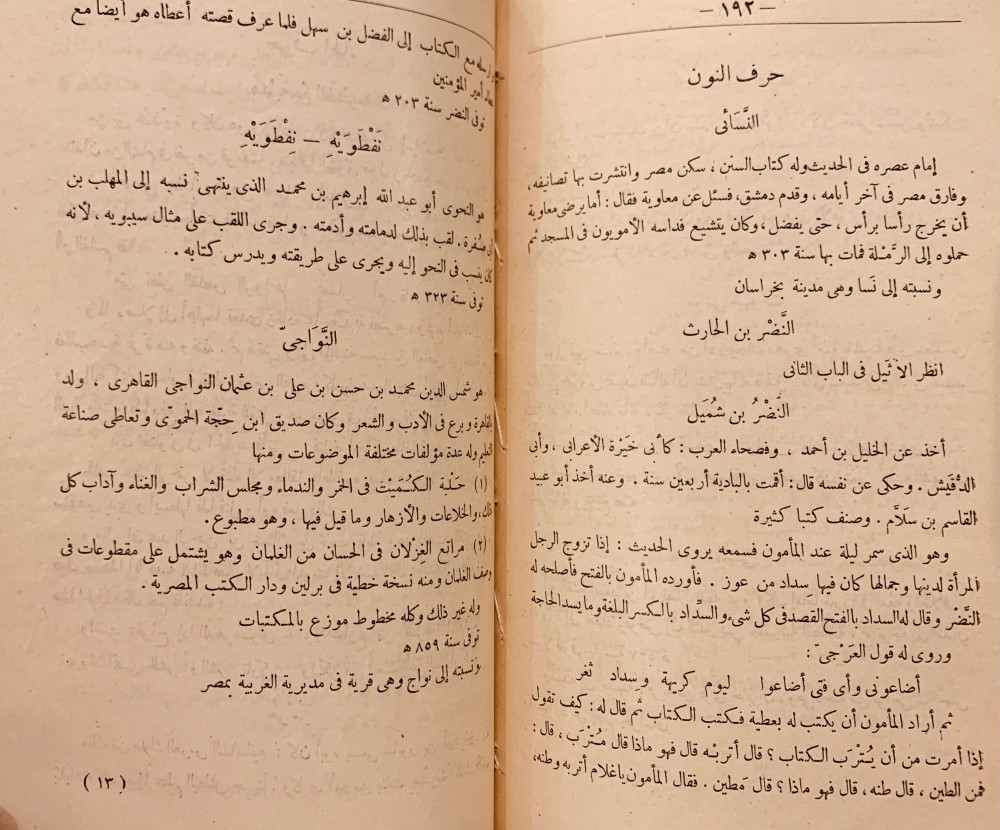 — ١٩٢ —
حرف النون
النَّسَائى
إمام عصره فى الحديث وله كتاب السنن ، سكن مصر وانتشرت بها تصانيفه ،
وفارق مصر فى آخر أيامه ، وقدم دمشق ، فسئل عن معاوية فقال : أما يرضى معاوية
أن يخرج رأسا برأس ، حتى يفضل ، وكان يتشيع فداسه الأمويون فى المسجد ثم
حملوه إلى الرَّمْلة فمات بها سنة ٣٠٣ ه
ونسبته إلى نَسا وهى مدينة بخراسان
النَّضْر بن الحارث
انظر الأثَيل فى الباب الثانى
النَّضْرُ بن شُمَيل
أخذ عن الخليل بن أحمد ، وفصحاء العرب : كأبى خَيْرة الأعرابى ، وأبى
الدُّقَيش . وحكى عن نفسه قال : أقمت بالبادية أربعين سنة . وعنه أخذ أبو عبيد
القاسم بن سَلاَّم . وصنف كتبا كثيرة
وهو الذى سمر ليلة عند المأمون فسمعه يروى الحديث : إذا تزوج الرجل
المرأة لدينها وجمالها كان فيها سِداد من عوز . فأورده المأمون بالفتح فأصلحه له
النَّضْر وقال له السداد بالفتح القصد فى كل شىء والسِّداد بالكسر البلغة وما يسد الحاجة
وروى له قول العَرْجىّ :
أضاعونى وأى فتى أضاعوا ليوم كريهة وسِداد ثغر
ثم أراد المأمون أن يكتب له بعطية فكتب الكتاب ثم قال له : كيف تقول
إذا أمرت من أن يُتْرَب الكتاب ؟ قال أتربْه قال فهو ماذا قال مُتْرَب ، قال :
فمن الطين ، قال طنه ، قال فهو ماذا ؟ قال مَطين . فقال المأمون ياغلام أتربه وطنه ،
مع الكتاب إلى الفضل بن سهل فلما عرف قصته أعطاه هو أيضا مع
أمير المؤمنين
توفى النضر سنة ٢٠٣ ه
نَفْطَوَيْهِ — نِفْطَوَيْهِ
هو النحوى أبو عبد الله إبرهيم بن محمد الذى ينتهى نسبه إلى المهلب بن
أبى صُفرة . لقب بذلك لدمامته وأدمته . وجرى اللقب على مثال سيبويه ، لأنه
كان ينسب فى النحو إليه ويجرى على طريقته ويدرس كتابه .
توفى سنة ٣٢٣ ه
النَّوَاجىّ
هو شمس الدين محمد بن حسن بن على بن عثمان النواجى القاهرى ، ولد
بالقاهرة وبرع فى الأدب والشعر وكان صديق ابن حِجّة الحموىّ وتعاطى صناعة
التعليم وله عدة مؤلفات مختلفة الموضوعات ومنها
(١) حَلْبة الكُمَيْت فى الخمر والندماء ومجلس الشراب والغناء وآداب كل
ذلك ، والخلاعات والأزهار وما قيل فيها ، وهو مطبوع .
(٢) مراتع الغِزْلان فى الحسان من الغلمان وهو يشتمل على مقطوعات فى
وصف الغلمان ومنه نسخة خطية فى برلين ودار الكتب المصرية .
وله غير ذلك وكله مخطوط موزع بالمكتبات
توفى سنة ٨٥٩ ه
ونسبته إلى نواج وهى قرية فى مديرية الغربية بمصر
( ١٣ )